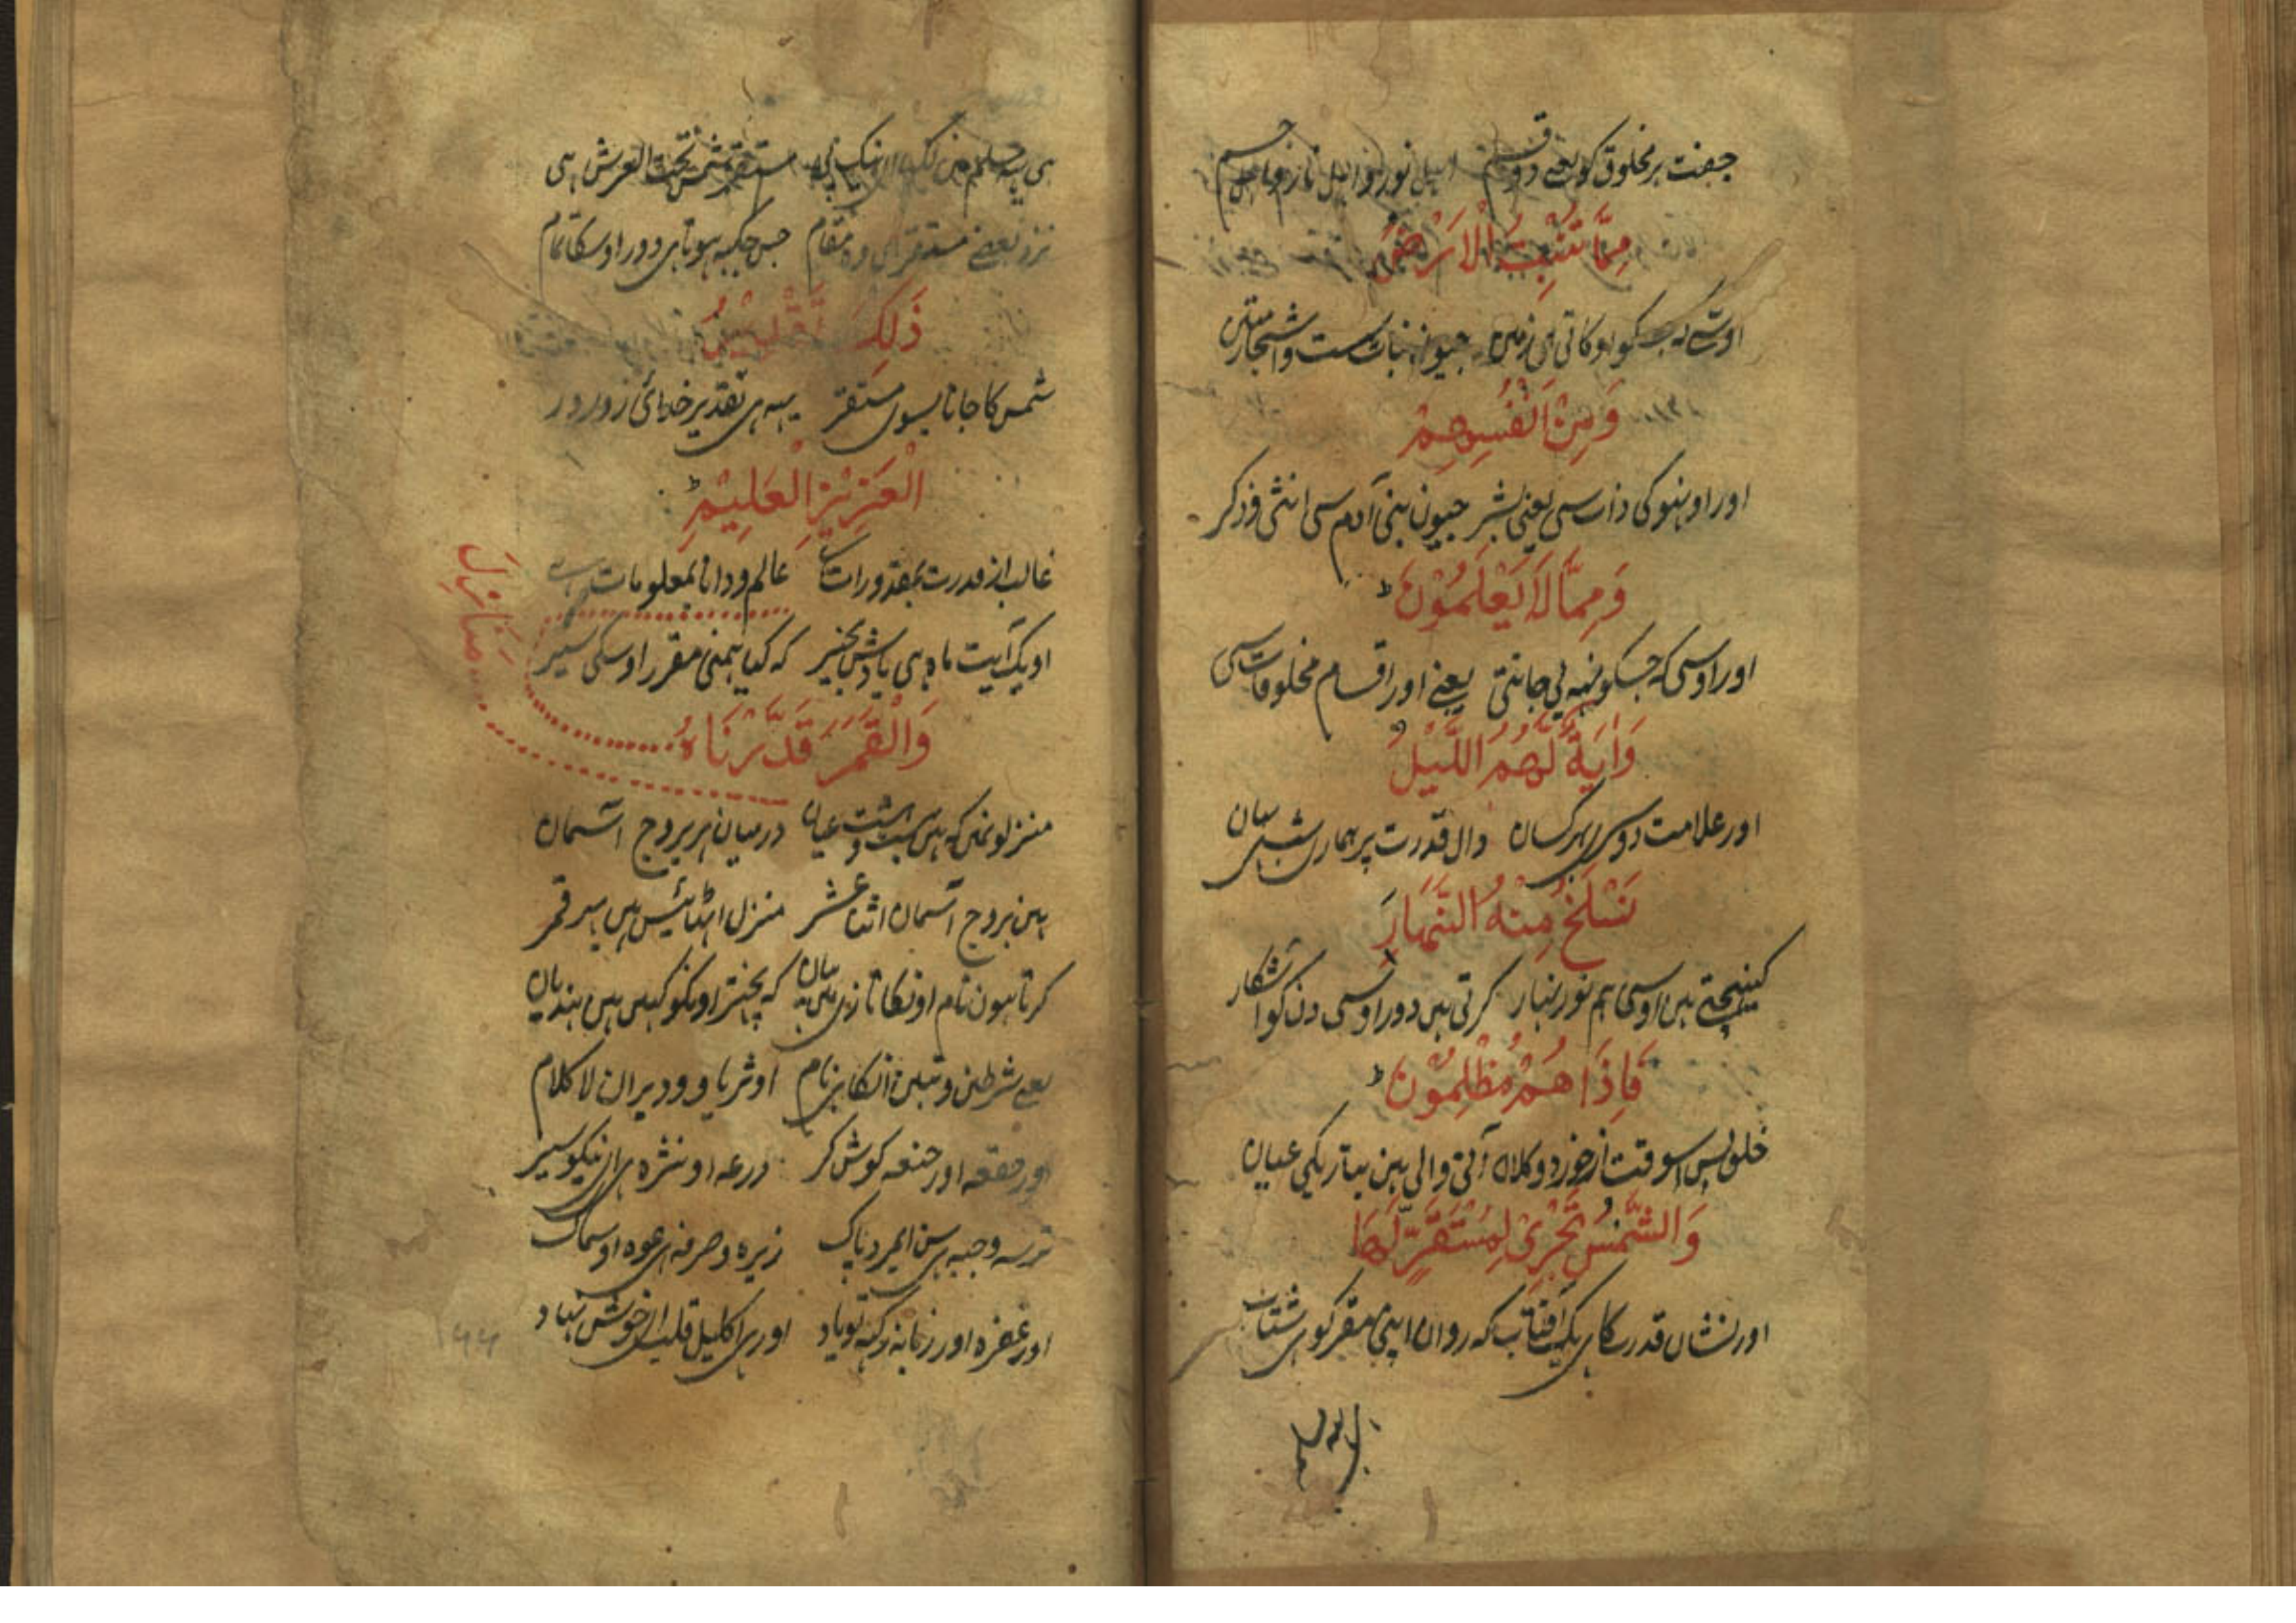 جفت ہر مخلوق کو یعنے دو قسم اہل نور و اہل نار و جسم
مِمَّا تُنْبِتُ الْاَرْضُ
اوسنے کہ جسکو اوکاتی ہی زمین جیون نبات ست و اشجار متین
وَمِنْ اَنْفُسِهِمْ
اور اونہو کی ذات سی یعنی بشر جیون بنی آدم سی انثی و ذکر
وَمِمَّا لَا يَعْلَمُوْنَ ط
اور اوسی کہ جسکو نہیں جانتی یعنے اور اقسام مخلوقات سی
وَاٰيَةٌ لَّهُمُ اللَّيْلُ
اور علامت دوسری بہر کسان دال قدرت پر ہماری شب
نَسْلَخُ مِنْهُ النَّهَارَ
کھینچتے ہیں اوسی ہم نور نہار کرتی ہیں دور اوسی دن کو آشکار
فَاِذَا هُمْ مُّظْلِمُوْنَ ط
خلق پس اسوقت از خورد و کلان آتی والی ہین بتاریکی عیان
وَالشَّمْسُ تَجْرِيْ لِمُسْتَقَرٍّ لَّهَا
اور نشان قدرت کا ہی یک آفتاب کہ روان اپنی مقر کو ہی شتاب
ہی مستقر شمس تحت العرش ہی
نزد بعضے مستقر ہی وہ مقام جس جگہہ ہوتا ہی دور اوسکا تمام
ذٰلِكَ تَقْدِيْرُ
شمس کا جانا بسوی مستقر یہہ ہی تقدیر خدای زورور
الْعَزِيْزِ الْعَلِيْمِ ط
غالب از قدرت بمقدورات عالم و دانا بمعلومات
او یک آیت ماہ ہی یادش بخیر کہ کیا ہمنی مقرر اوسکی سیر
وَالْقَمَرَ قَدَّرْنَاهُ
مَنَازِلَ
منزلونمیں کہ ہیں بست و ہشت عیان درمیان ہر بروج آسمان
ہین بروج آسمان اثنا عشر منزل اٹھائیس ہیں بہر قمر
کرتا ہون نام اونکا تازی میں بیان کہ نچھتر اونکو کہیں ہیں ہندیان
یعنے شرطین و بطین انکا ہی نام او ثریا و و دبران لا کلام
اور ہقعہ اور ہنعہ کوش کر ذرعہ او نثرہ ہی از نیکو سیر
طرفہ و جبہہ ہی سن ای مرد پاک زبرہ و صرفہ ہی عوہ او سماک
اور غفرہ اور زبانہ یاد اور ہی اکلیل قلب ای خوش نہاد